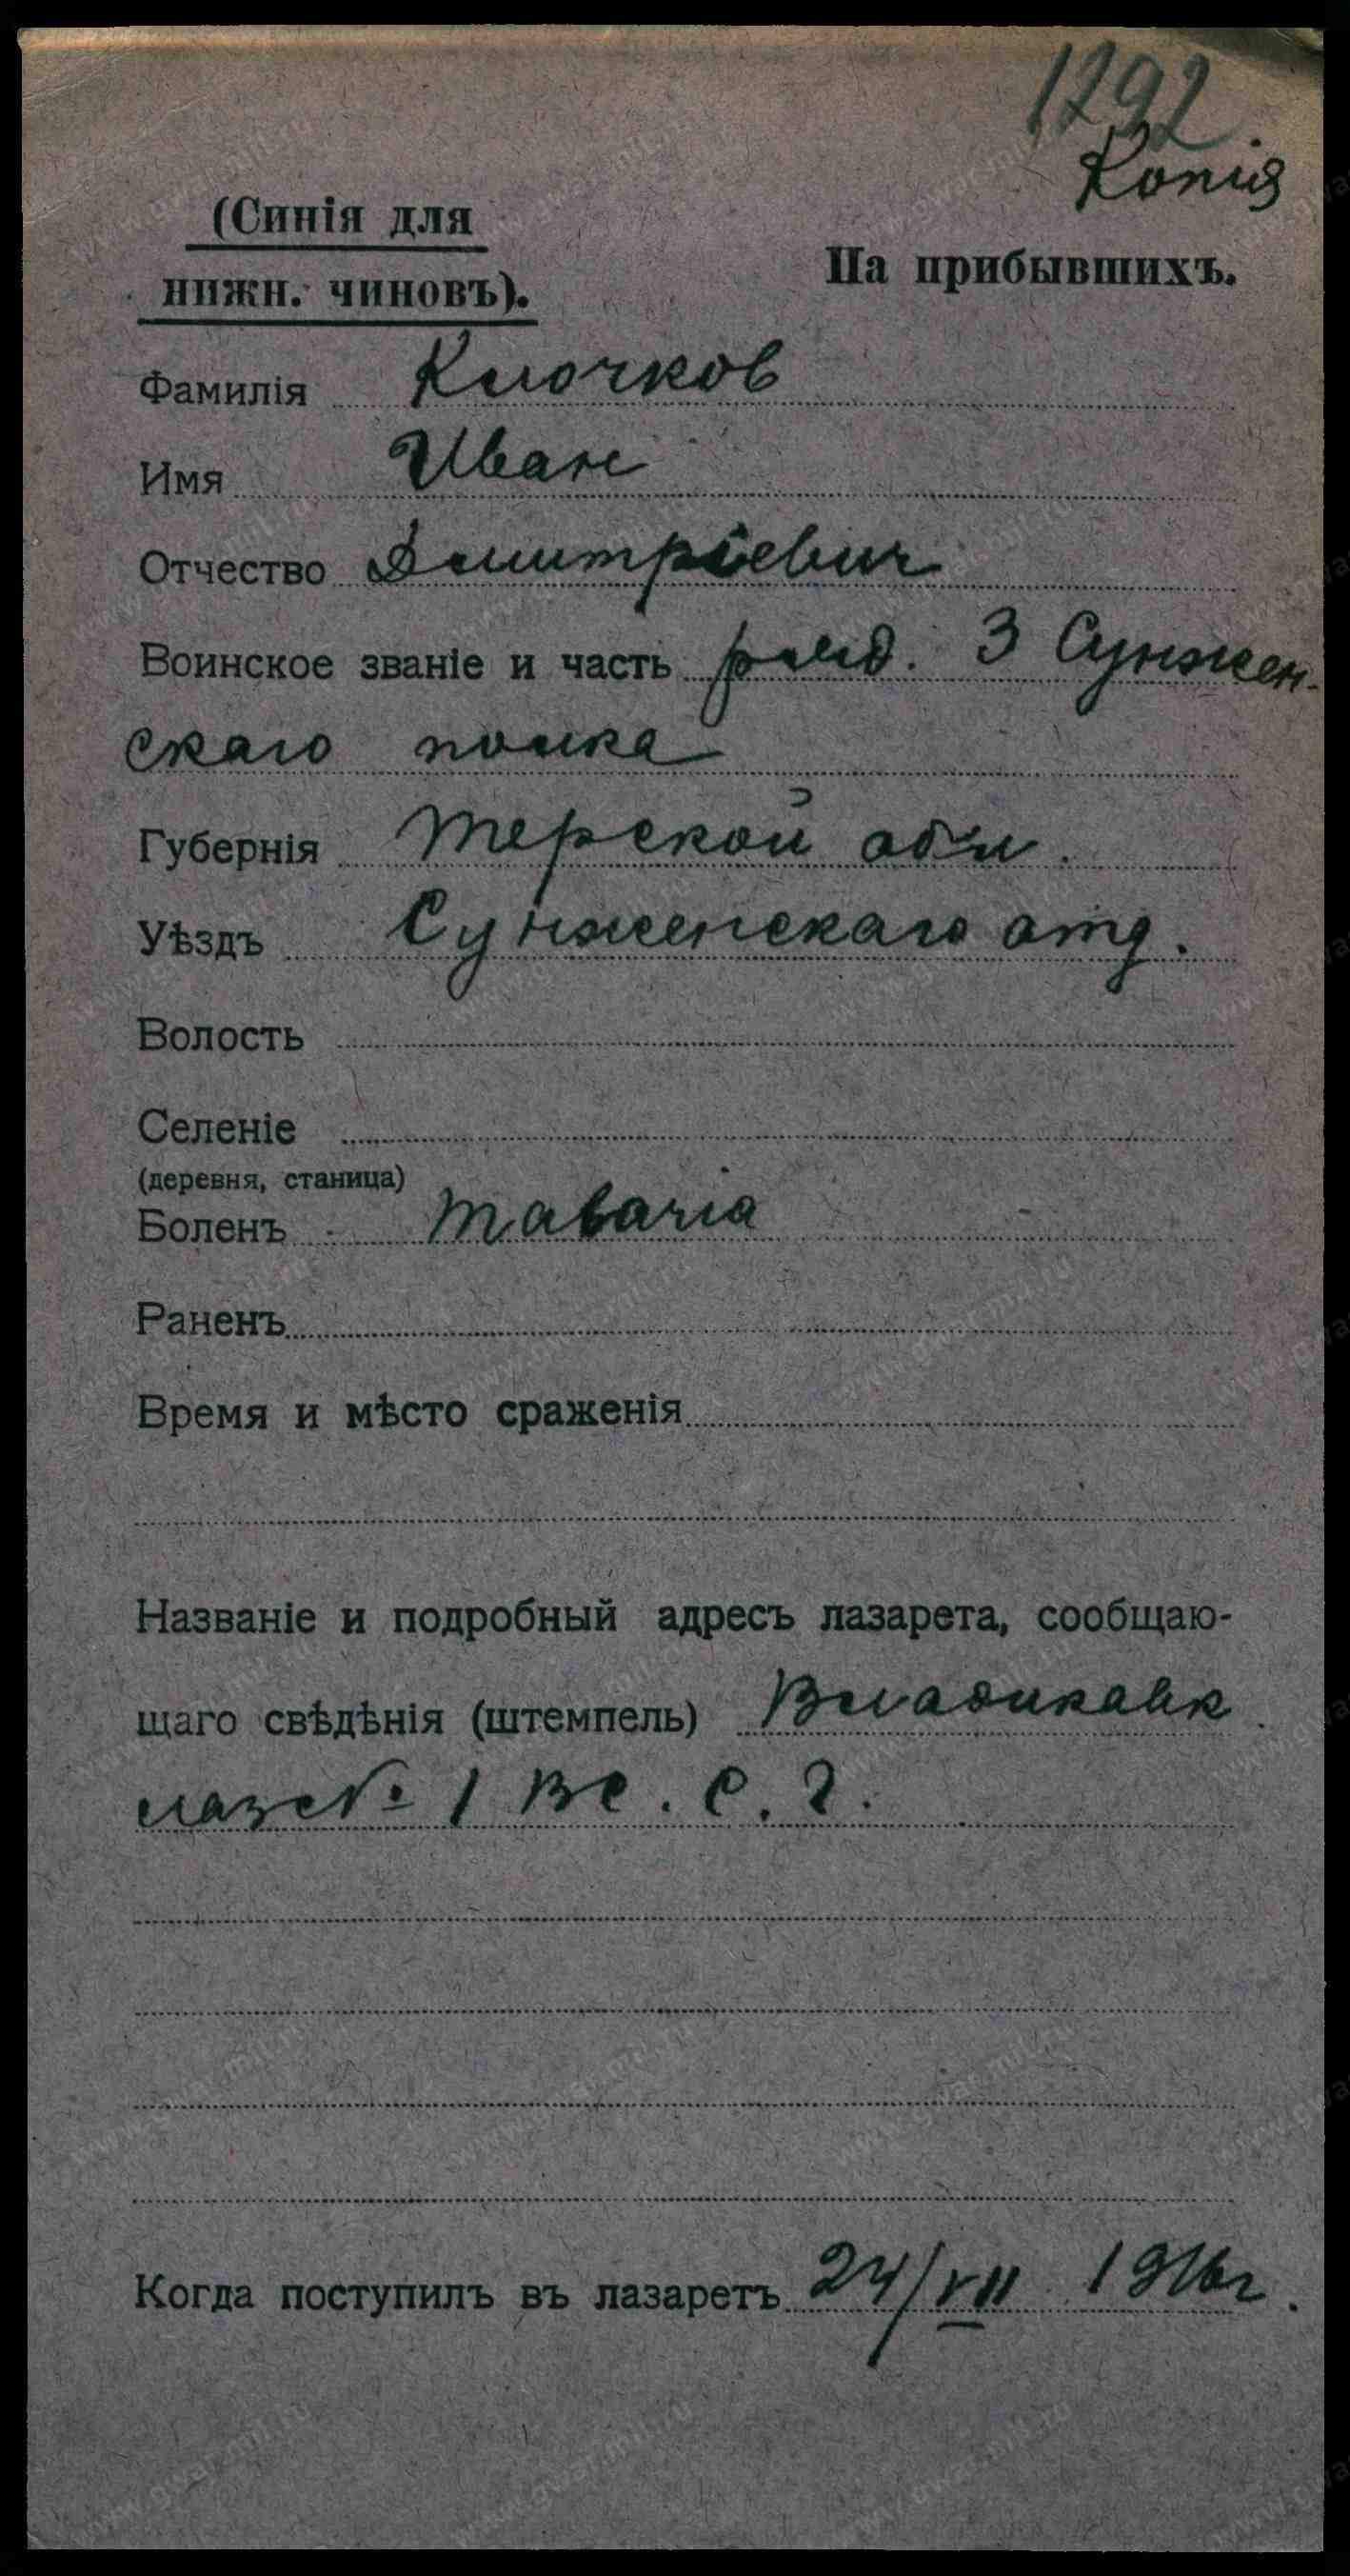 1292
Копия
(Синія для
нижн. чиновъ).
На прибывшихъ.
Фамилія Клочков
Имя Иван
Отчество Дмитріевич
Воинское званіе и часть 3 Сунжен-
скаго полка
Губернія Терской обл.
Уѣздъ Сунженскаго отд.
Волость
Селеніе
(деревня, станица)
Боленъ
Раненъ
Время и мѣсто сраженія
Названіе и подробный адресъ лазарета, сообщаю-
щаго свѣдѣнія (штемпель) Владикавк.
лаз № 1 Вс. С. Г.
Когда поступилъ въ лазаретъ 24/VII 1916 г.